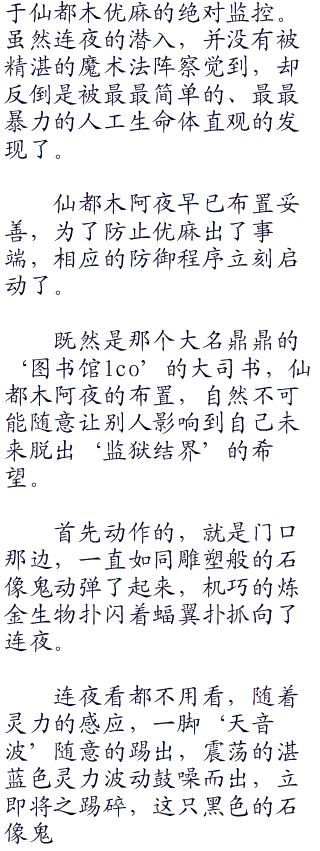 于仙都木优麻的绝对监控。
虽然连夜的潜入，并没有被
精湛的魔术法阵察觉到，却
反倒是被最最简单的、最最
暴力的人工生命体直观的发
现了。
仙都木阿夜早已布置妥
善，为了防止优麻出了事
端，相应的防御程序立刻启
动了。
既然是那个大名鼎鼎的
‘图书馆lco’的大司书，仙
都木阿夜的布置，自然不可
能随意让别人影响到自己未
来脱出‘监狱结界’的希
望。
首先动作的，就是门口
那边，一直如同雕塑般的石
像鬼动弹了起来，机巧的炼
金生物扑闪着蝠翼扑抓向了
连夜。
连夜看都不用看，随着
灵力的感应，一脚‘天音
波’随意的踢出，震荡的湛
蓝色灵力波动鼓噪而出，立
即将之踢碎，这只黑色的石
像鬼